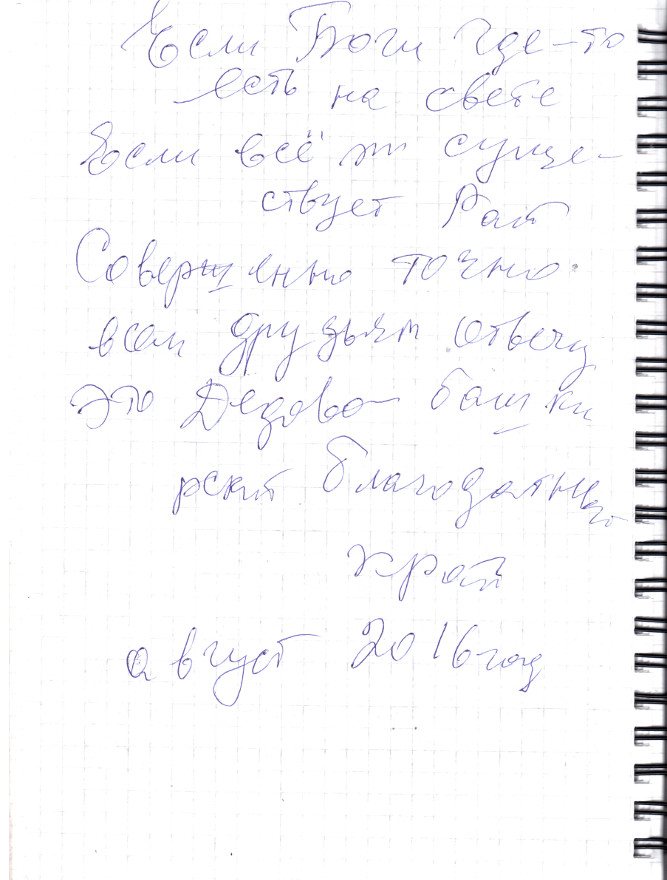 Если Боги где-то
есть на свете
Если всё ж суще-
ствует Рай
Совершенно точно
всем друзьям отвечу
это Дедово башки
рский благодатный
край
август 2016 год